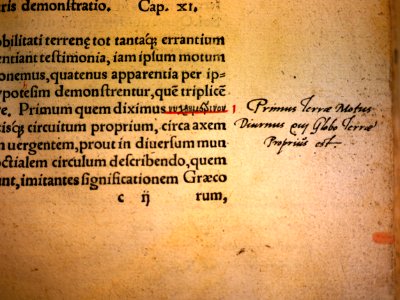 ris demonstratio. Cap. XI.
obilitati terrenę tot tantaq́; errantium
entiant testimonia, iam ipsum motum
onemus, quatenus apparentia per ip-
ypotesim demonstrentur, quē triplicē
re. Primum quem diximus νυχθημερινὸν
tisq́; circuitum proprium, circa axem
m uergentem, prout in diuersum mun
octialem circulum describendo, quem
unt, imitantes significationem Græco
c ij rum,
Primus Terræ Motus
Diurnus qui Globo Terræ
Proprius est.